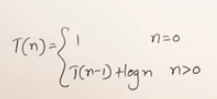 T(n) = { 1 n=0
T(n-1) + log n n>0